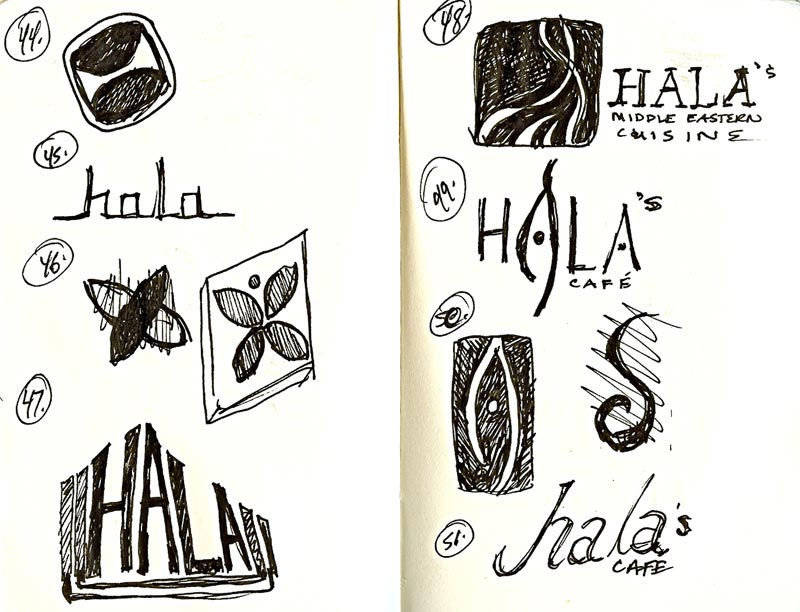 44.
45.
hala
46.
47.
HALA
48.
HALA's
MIDDLE EASTERN
CUISINE
49.
HALA's
CAFÉ
50.
S
51.
hala's
CAFE